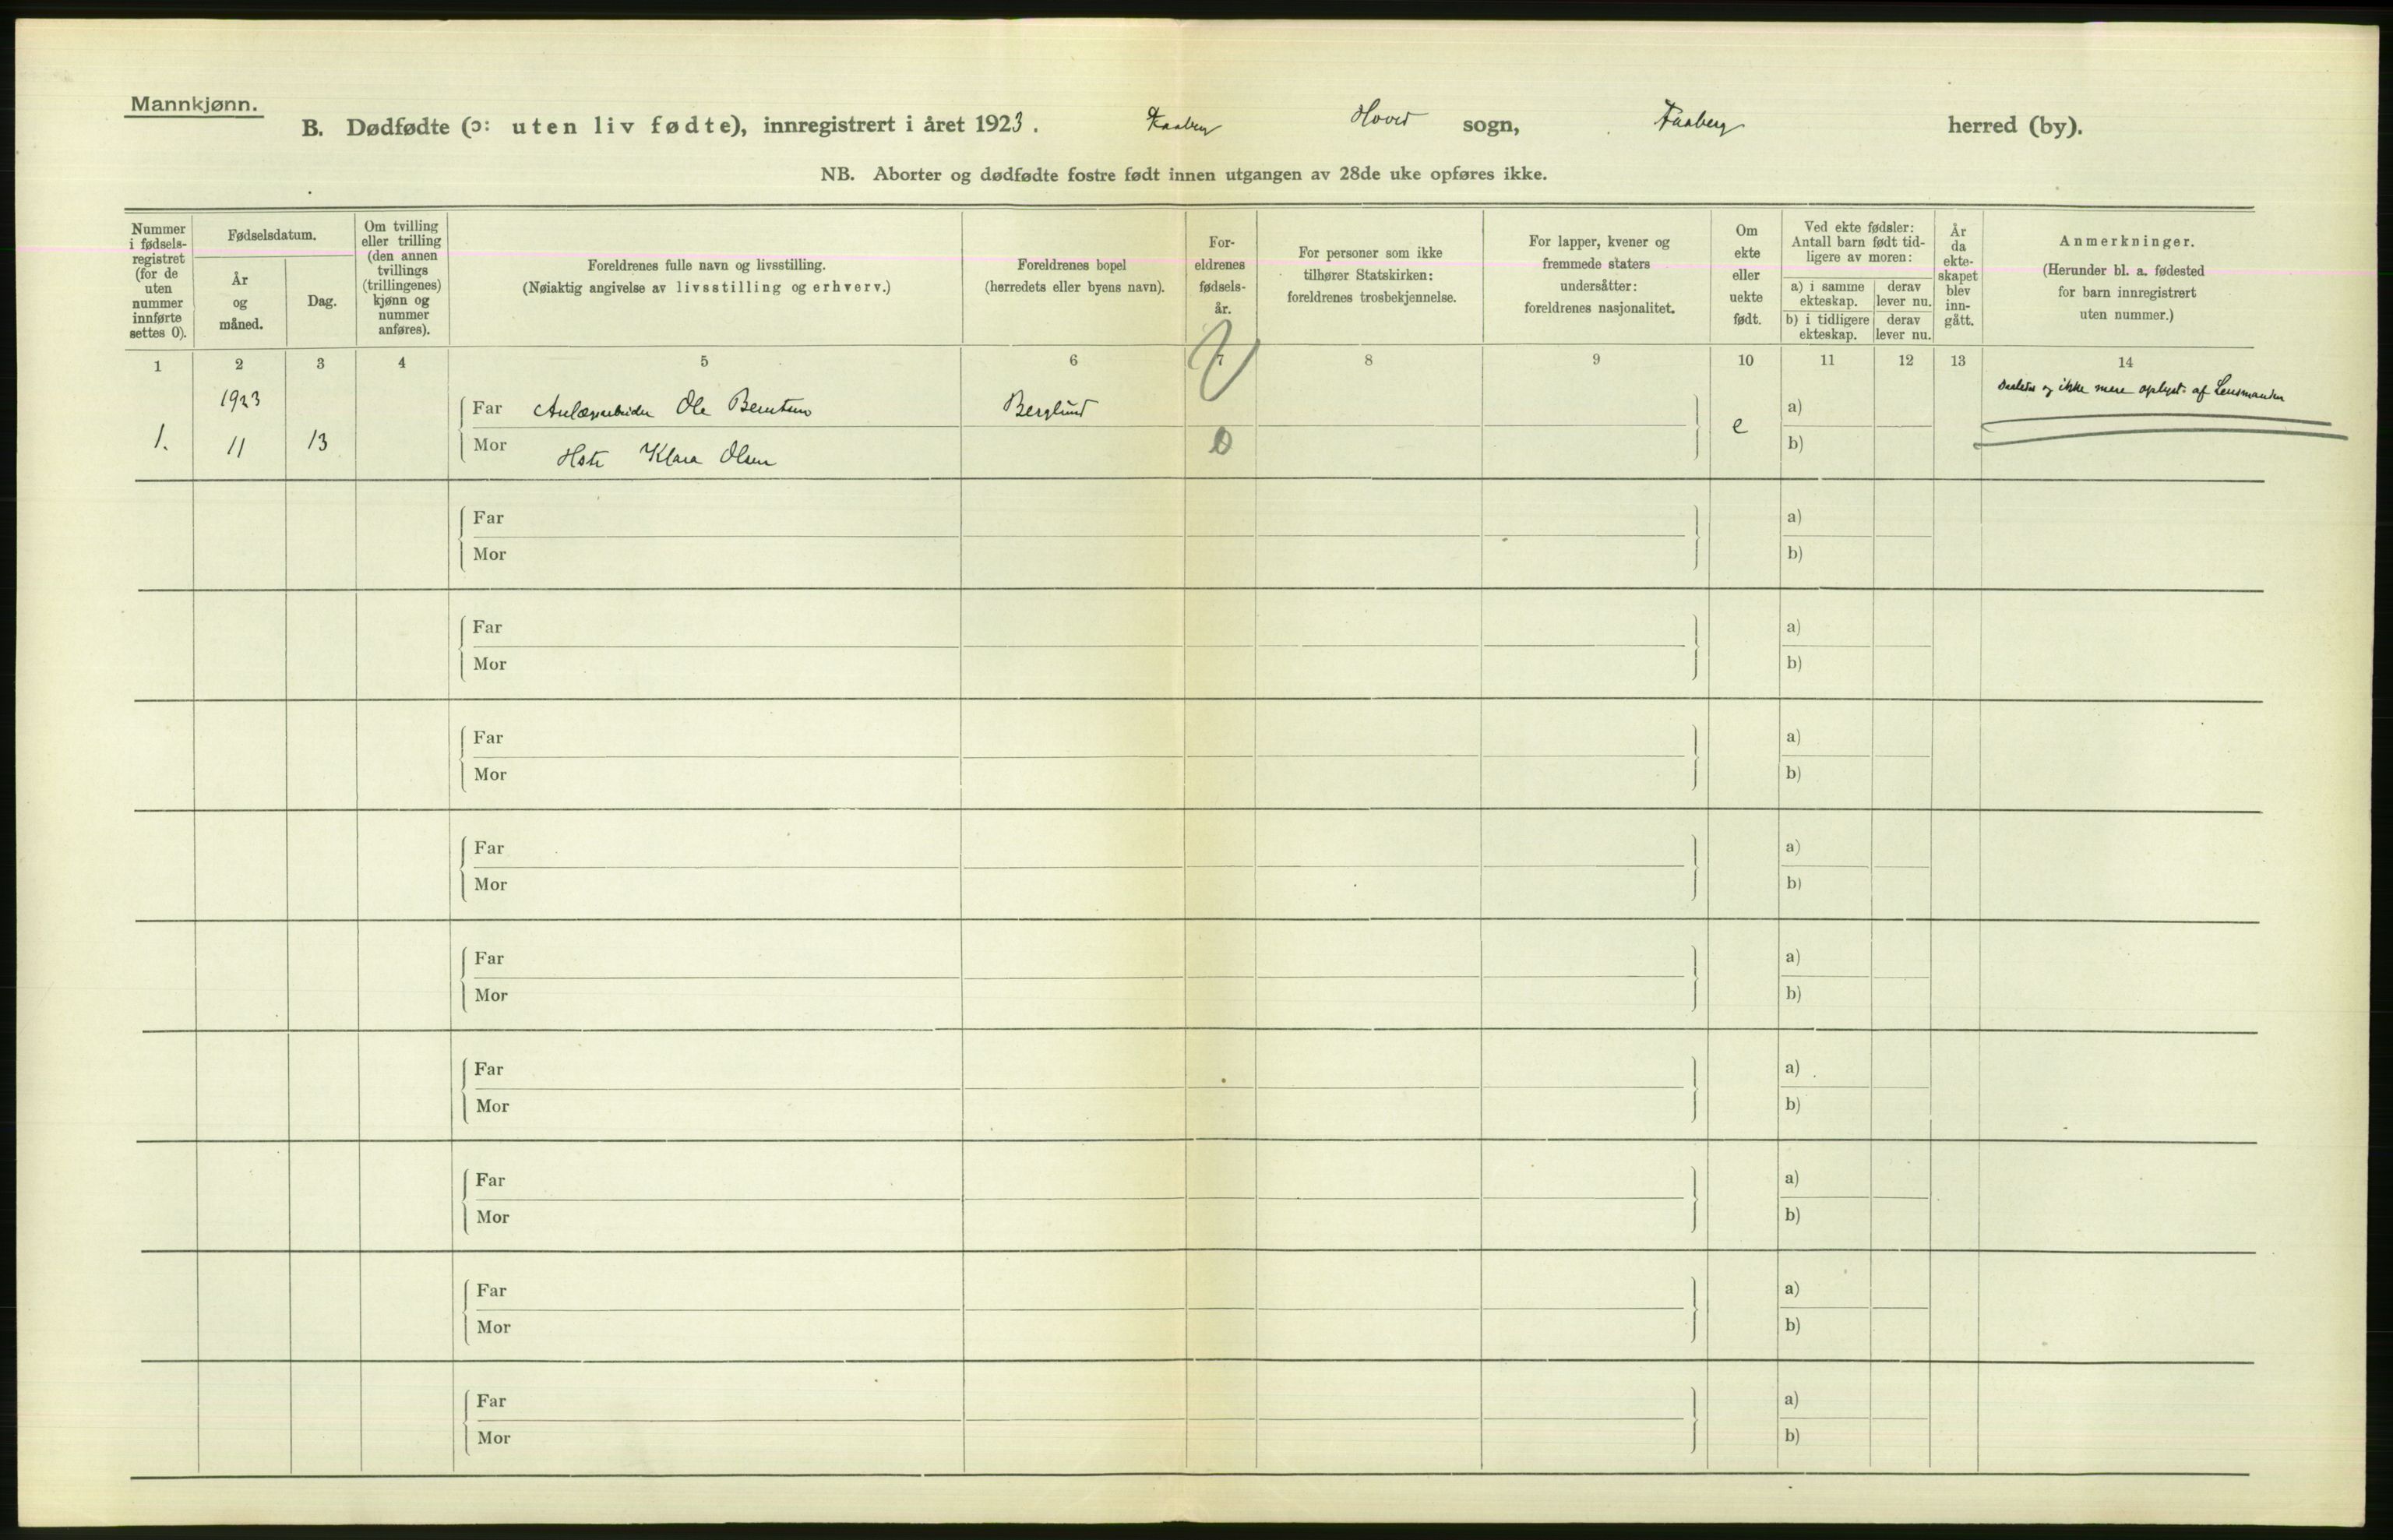 Mannkjønn.
B. Dødfødte (ɔ: uten liv fødte), innregistrert i året 1923. Faaberg Hoved sogn, Faaberg herred (by).
NB. Aborter og dødfødte fostre født innen utgangen av 28de uke opføres ikke.
Nummer
i fødsels-
registret
(for de
uten
nummer
innførte
settes 0).
Fødselsdatum.
År
og
måned.
Dag.
Om tvilling
eller trilling
(den annen
tvillings
(trillingenes)
kjønn og
nummer
anføres).
Foreldrenes fulle navn og livsstilling.
(Nøiaktig angivelse av livsstilling og erhverv.)
Foreldrenes bopel
(herredets eller byens navn).
For-
eldrenes
fødsels-
år.
For personer som ikke
tilhører Statskirken:
foreldrenes trosbekjennelse.
For lapper, kvener og
fremmede staters
undersåtter:
foreldrenes nasjonalitet.
Om
ekte
eller
uekte
født.
Ved ekte fødsler:
Antall barn født tid-
ligere av moren:
a) i samme
ekteskap.
derav
lever nu.
b) i tidligere
ekteskap.
derav
lever nu.
År
da
ekte-
skapet
blev
inn-
gått.
Anmerkninger.
(Herunder bl. a. fødested
for barn innregistrert
uten nummer.)
1 2 3 4 5 6 7 8 9 10 11 12 13 14
1923 Far Anlægsarbeider Ole Berntsen Berglund a) og ikke mere oplyst af Lensmanden
1. 11 13 Mor Hstr Klara Olsen 0 e b)
Far a)
Mor b)
Far a)
Mor b)
Far a)
Mor b)
Far a)
Mor b)
Far a)
Mor b)
Far a)
Mor b)
Far a)
Mor b)
Far a)
Mor b)
Far a)
Mor b)